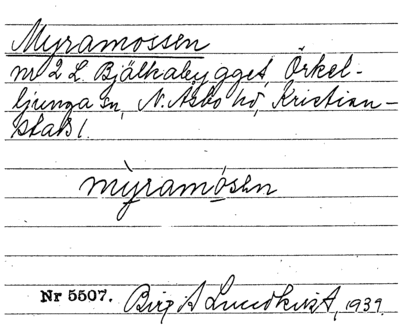 Myramossen
nr 2 L. Bjälkabygget, Örkel-
ljunga sn, N. Åsbo hd, Kristian-
stads l.
mỳramósen
Nr 5507. Birgit Lundkvist, 1939.